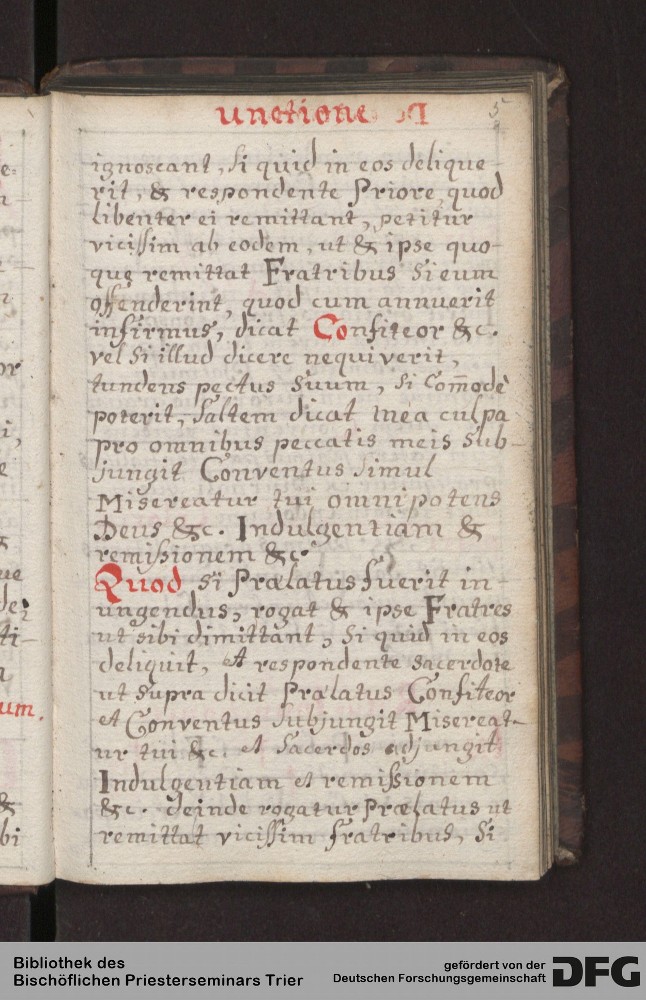 unctione
5
ignoscant, si quid in eos delique-
rit, & respondente Priore, quod
libenter ei remittant, petitur
vicissim ab eodem, ut & ipse quo-
que remittat Fratribus si eum
offenderint, quod cum annuerit
infirmus, dicat Confiteor &c.
vel si illud dicere nequiverit,
tundens pectus suum, si com̅odè
poterit, saltem dicat mea culpa
pro omnibus peccatis meis sub-
jungit Conventus simul
Misereatur tui omnipotens
Deus &c. Indulgentiam &
remißionem &c.
Quod si Prælatus fuerit in-
ungendus, rogat & ipse Fratres
ut sibi dimittant, si quid in eos
deliquit, et respondente sacerdote
ut supra dicit Prælatus Confiteor
et Conventus subjungit Misereat-
ur tui &c. et sacerdos adjungit
Indulgentiam et remißionem
&c. deinde rogatur Prælatus ut
remittat vicissim fratribus, si
Bibliothek des
Bischöflichen Priesterseminars Trier
gefördert von der
Deutschen Forschungsgemeinschaft
DFG